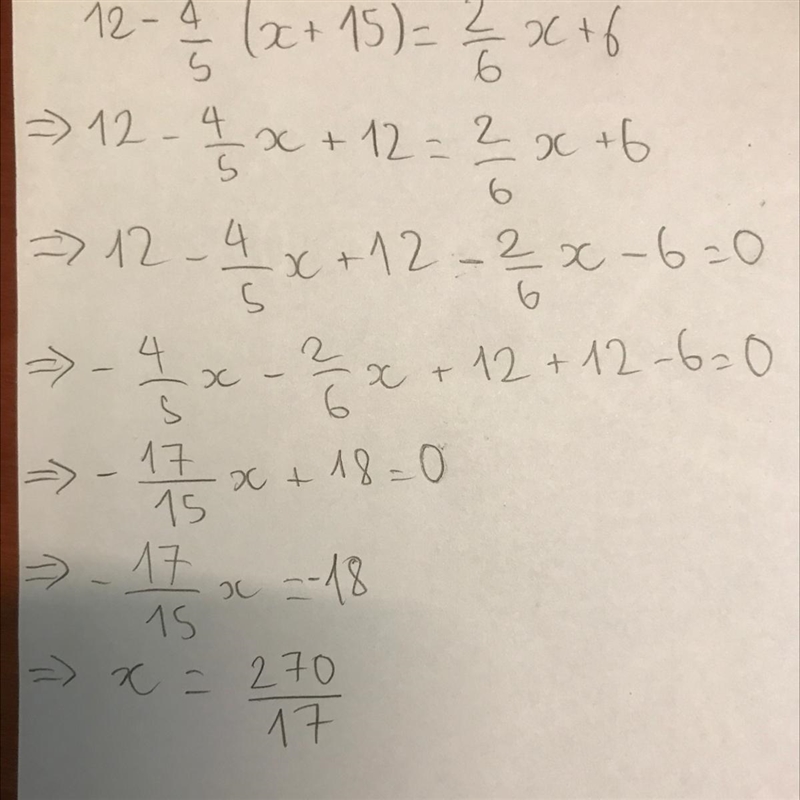 12 - 4/5 (x + 15) = 2/6 x + 6
⇒ 12 - 4/5 x + 12 = 2/6 x + 6
⇒ 12 - 4/5 x + 12 - 2/6 x - 6 = 0
⇒ - 4/5 x - 2/6 x + 12 + 12 - 6 = 0
⇒ - 17/15 x + 18 = 0
⇒ - 17/15 x = -18
⇒ x = 270/17